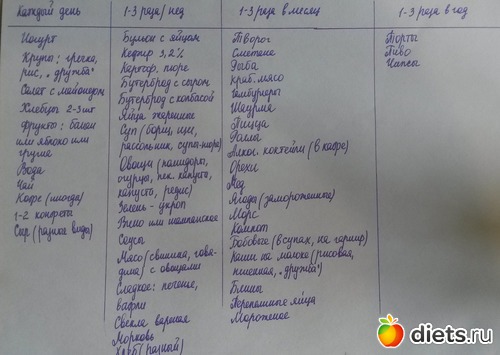 Каждый день
Йогурт
Крупы: гречка,
рис, "дружба"
Салат с майонезом
Хлебцы 2-3 шт
Фрукты: банан
или яблоко или
груша
Вода
Чай
Кофе (иногда)
1-2 конфеты
Сыр (разные виды)
1-3 раза/нед
Бульон с яйцом
Кефир 3,2%
Картоф. пюре
Бутерброд с сыром
Бутерброд с колбасой
Яйца жаренные
Суп (борщ, щи,
рассольник, супы-пюре)
Овощи (помидоры,
огурцы, пек. капуста,
капуста, редис)
Зелень - укроп
Вино или шампанское
Соусы
Мясо (свинина, говя-
дина) с овощами
Сладкое: печенье,
вафли
Свекла вареная
Морковь
Хлеб (разный)
1-3 раза в месяц
Творог
Сметана
Рыба
краб. мясо
Гамбургеры
Шаурма
Пицца
Роллы
Алког. коктейли (в кафе)
Орехи
Мед
Ягоды (замороженные)
Морс
Компот
Бобовые (в супах, на гарнир)
Каши на молоке (рисовая,
пшенная, "дружба")
Блины
Перепелиные яйца
Мороженое
1-3 раза в год
Торты
Пиво
Чипсы
diets.ru